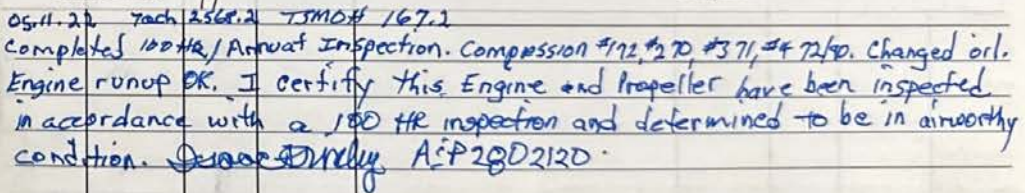 05.11.22 Tach 2568.2 TSMOH 167.2
Completed 100 HR/Annual Inspection. Compression #1 72, #2 70, #3 71, #4 72/80. Changed oil.
Engine runup OK. I certify this Engine and Propeller have been inspected
in accordance with a 100 HR inspection and determined to be in airworthy
condition. A&P 2802120.